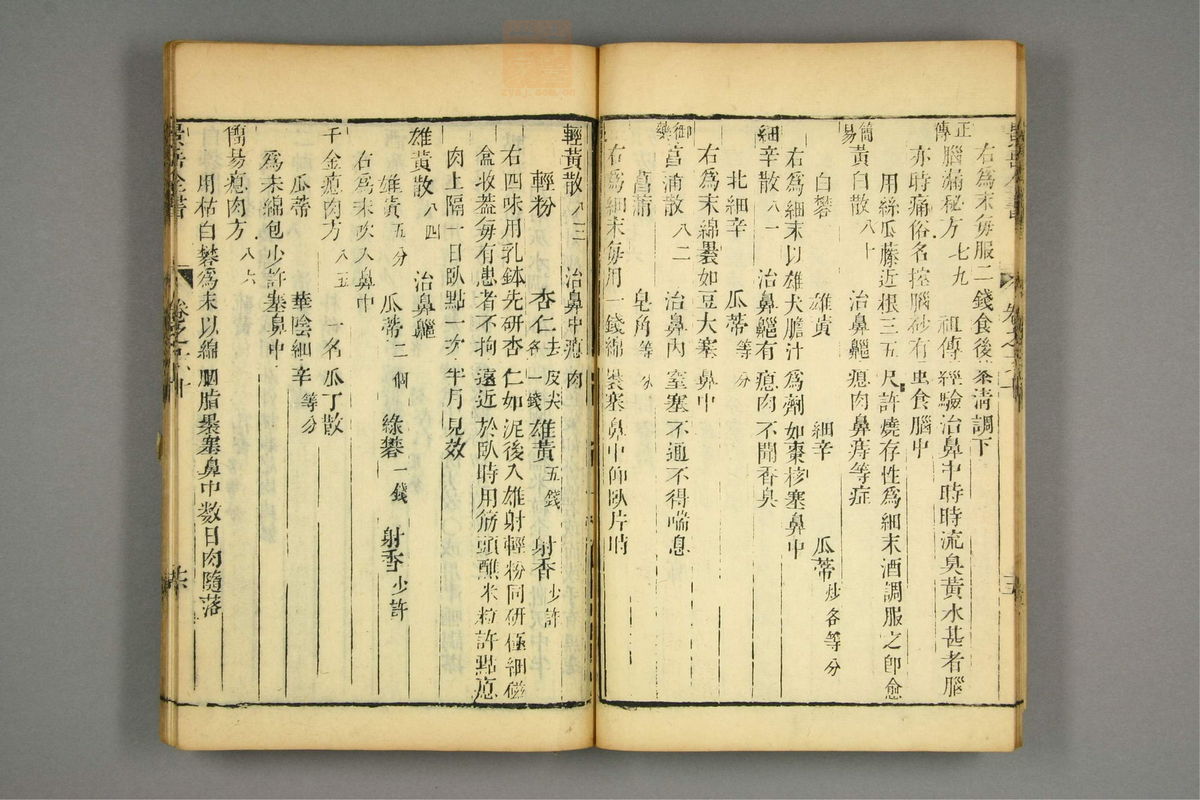 右爲末每服二錢食後茶清調下
正傳腦漏秘方 七九 祖傳經驗治鼻中時時流臭黃水甚者腦
亦時痛俗名控腦砂有虫食腦中
用絲瓜藤近根三五尺許燒存性爲細末酒調服之卽愈
簡易黃白散 八十 治鼻齆瘜肉鼻痔等症
白礬 雄黃 細辛 瓜蒂炒各等分
右爲細末以雄犬膽汁爲劑如棗核塞鼻中
細辛散 八一 治鼻齆有瘜肉不聞香臭
北細辛 瓜蒂等分
右爲末綿裹如豆大塞鼻中
御藥菖蒲散 八二 治鼻內窒塞不通不得喘息
菖蒲 皂角等分
右爲細末每用一錢綿裹塞鼻中仰臥片時
輕黃散 八三 治鼻中瘜肉
輕粉 杏仁去皮尖各一錢 雄黃五錢 射香少許
右四味用乳鉢先研杏仁如泥後入雄射輕粉同研極細磁
盒收蓋每有患者不拘遠近於臥時用筯頭蘸米粒許點瘜
肉上隔一日臥點一次半月見效
雄黃散 八四 治鼻齆
雄黃五分 瓜蒂二個 綠礬一錢 射香少許
右爲末吹入鼻中
千金瘜肉方 八五 一名瓜丁散
瓜蒂 華陰細辛等分
爲末綿包少許塞鼻中
簡易瘜肉方 八六
用枯白礬爲末以綿胭脂裹塞鼻中数日肉隨落
景岳全書 卷之六十 共